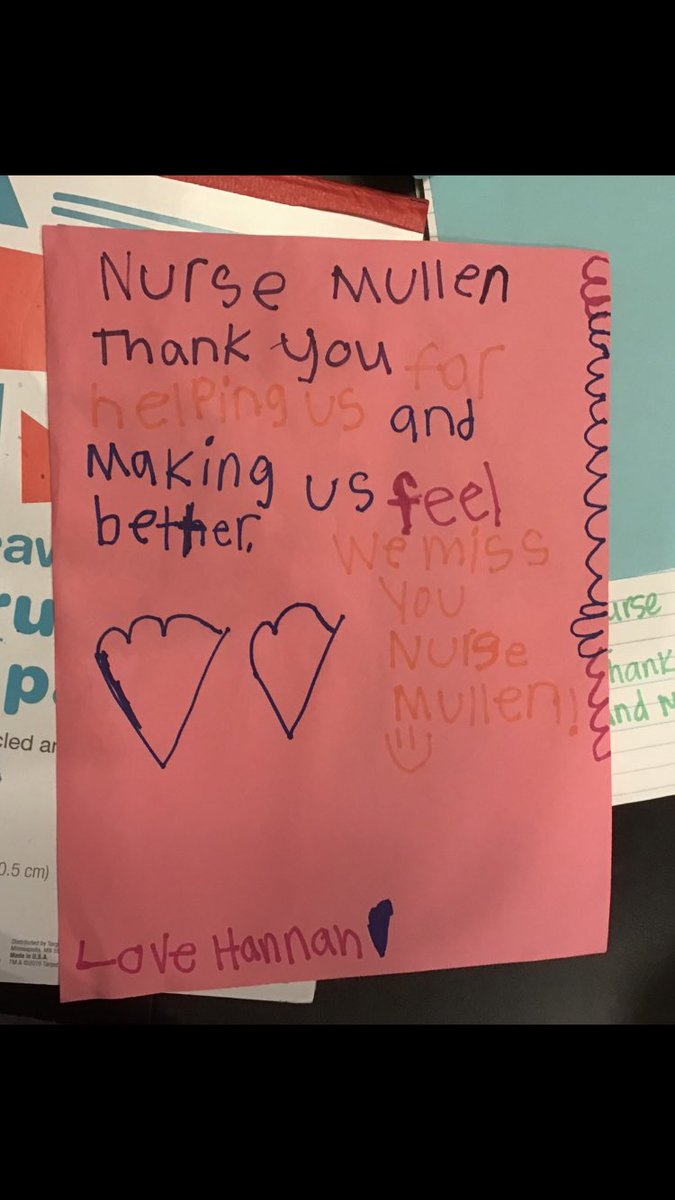 Nurse Mullen
Thank you for
helping us and
Making us feel
better.
We miss
You
Nurse
Mullen!
Love Hannah
urse
hank
and
cled ar
0.5 cm)
Distributed by Targ
Minneapolis, MN
Made in U.S.A.
TM & ©2016 Target